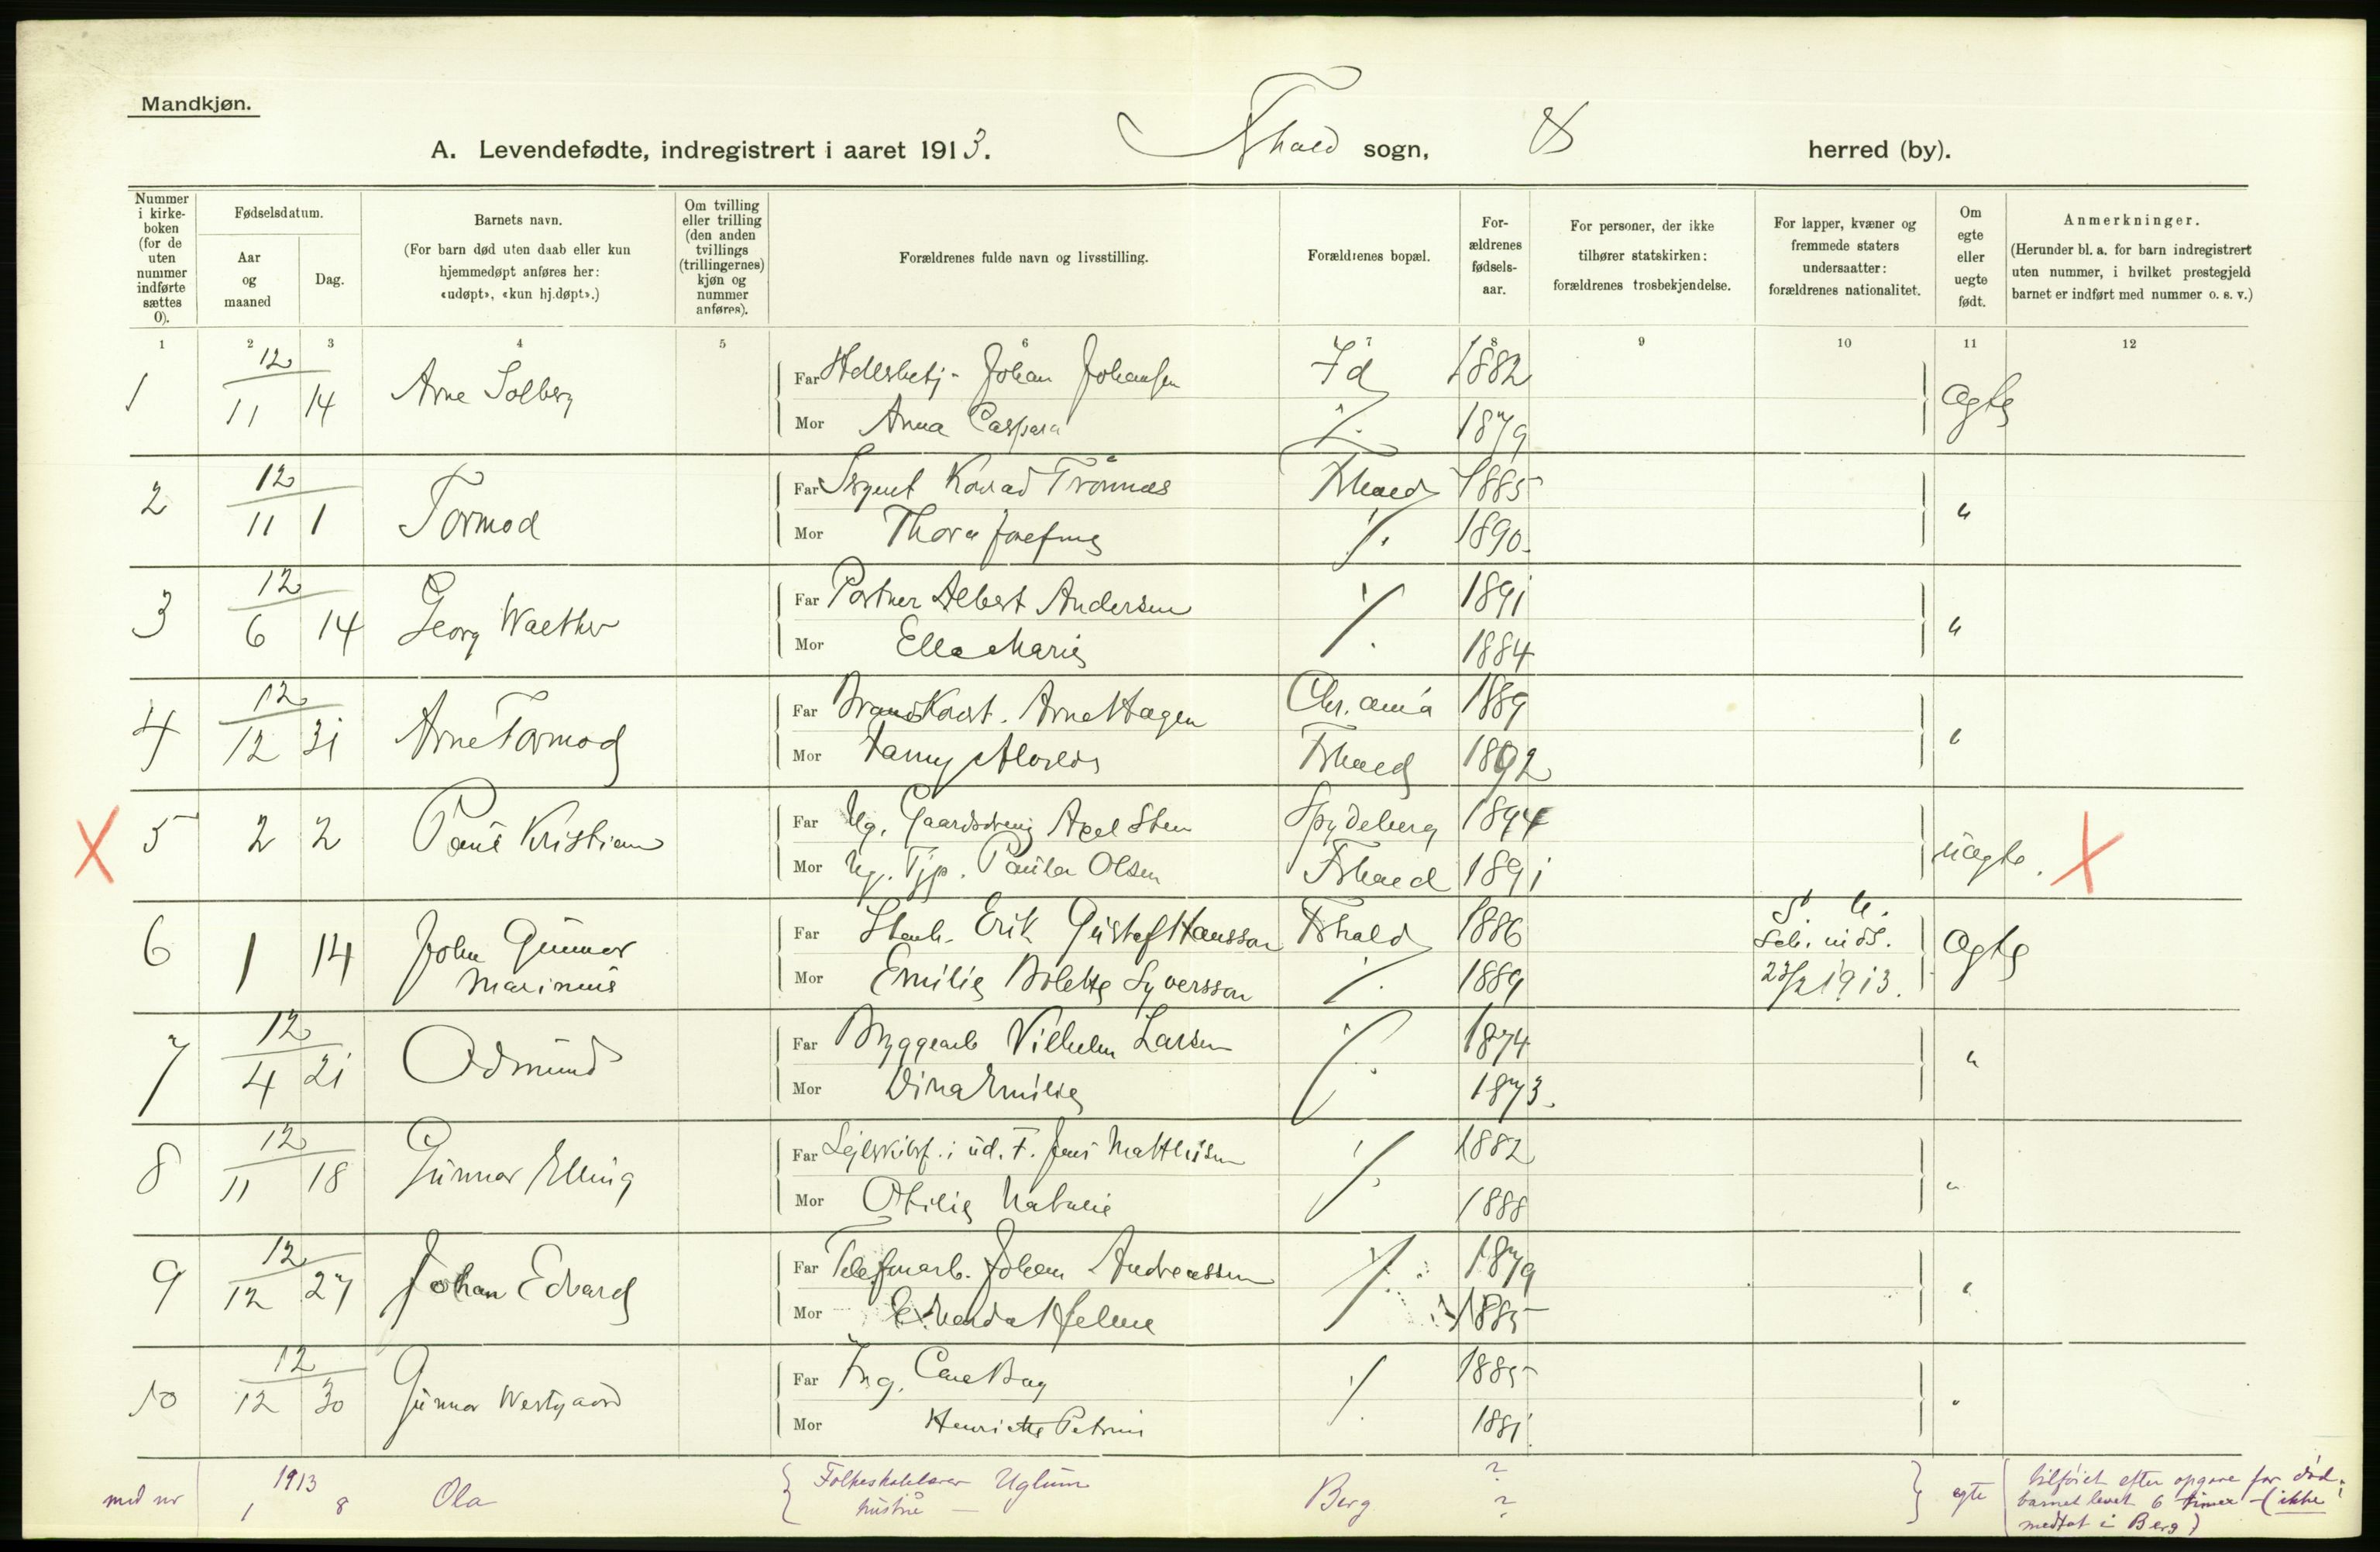 Mandkjøn.
A. Levendefødte, indregistrert i aaret 1913. Fhald sogn, herred (by).
Nummer i kirke-boken (for de uten nummer indførte sættes 0).
Fødselsdatum.
Aar og maaned
Dag.
Barnets navn.
(For barn død uten daab eller kun hjemmedøpt anføres her: «udøpt», «kun hj.døpt».)
Om tvilling eller trilling (den anden tvillings (trillingernes) kjøn og nummer anføres).
Forældrenes fulde navn og livsstilling.
Forældrenes bopæl.
For-ældrenes fødsels-aar.
For personer, der ikke tilhører statskirken: forældrenes trosbekjendelse.
For lapper, kvæner og fremmede staters undersaatter: forældrenes nationalitet.
Om egte eller uegte født.
Anmerkninger.
(Herunder bl. a. for barn indregistrert uten nummer, i hvilket prestegjeld barnet er indført med nummer o. s. v.)
1 2 3 4 5 6 7 8 9 10 11 12
1 12/11 14 Arne Solberg Far Johan Johansen Id 1882 Ægte
Mor Anna Caspara ". 1879
2 12/11 1 Tormod Far Konrad Trønnæs Fhald 1885 "
Mor Thora Josefine ". 1890
3 12/6 14 Georg Walther Far Portner Albert Andersen ". 1891 "
Mor Ella Marie 1884
4 12/12 31 Arne Tormod Far Arne Hagen Chr.ania 1889 "
Mor Fanny Fhald 1892
5 2 2 Paul Kristian Far Ug. Gaardsdreng Axel Sten Spydeberg 1894 uægte.
Mor Ug. Tjp. Paula Olsen Fhald 1891
6 1 14 John Gunnar Marinius Far Stenh. Erik Gustaf Hansson Fhald 1886 S. U. Ægte
Mor Emilie Bolette Syversson ". 1889 23/2 1913.
7 12/4 21 Odmund Far Byggearb Vilhelm Larsen ". 1874 "
Mor Dina Emilie 1873.
8 12/11 18 Gunnar Elling Far Sejlskibsf. i ud. F. Jens Mathisen ". 1882 "
Mor Otilie Natalie 1888
9 12/12 27 Johan Edvard Far Telefonarb. Johan Andreassen ". 1879 "
Mor Helene 1885
10 12/12 30 Gunnar Westgaard Far Ing. Carl Bay ". 1885 "
Mor Henriette Petrine 1881
med nr 1913 1 8 Ola Folkeskolelærer Uglum Berg ? egte tilføiet efter opgave for død;
hustru — ? barnet levet 6 timer — (ikke
medtat i Berg)